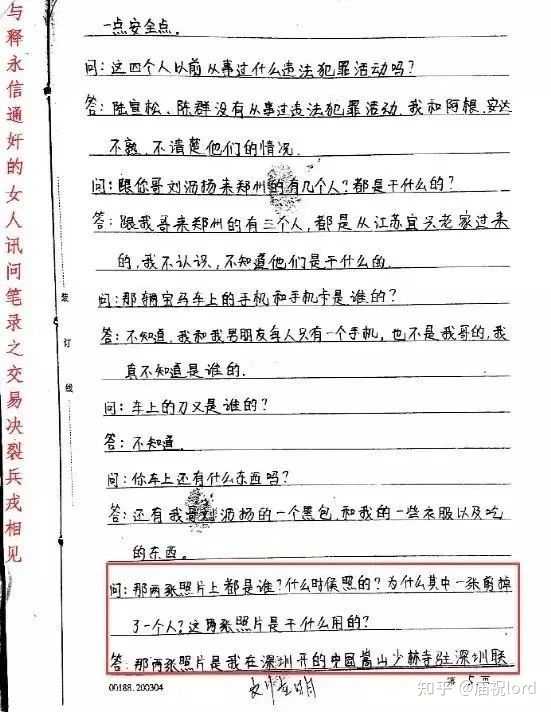 与释永信通奸的女人讯问笔录之交易决裂兵戎相见
装订线
一点安全点。
问:这四个人以前从事过什么违法犯罪活动吗?
答:陆宣松、陈群没有从事过违法犯罪活动.我和阿根、安达
不熟.不清楚他们的情况.
问:跟你哥刘沥扬来郑州的有几个人?都是干什么的?
答:跟我哥来郑州的有三个人,都是从江苏宜兴老家过来
的,我不认识,不知道他们是干什么的.
问:那辆宝马车上的手机和手机卡是谁的?
答:不知道.我和我男朋友每人只有一个手机,也不是我哥的,我
真不知道是谁的.
问:车上的刀又是谁的?
答:不知道.
问:你车上还有什么东西吗?
答:还有我哥刘沥扬的一个黑包.和我的一些衣服以及吃
的东西。
问:那两张照片上都是谁?什么时候照的?为什么其中一张剪掉
了一个人?这两张照片是干什么用的?
答:那两张照片是我在深圳开的中国嵩山少林寺驻深圳联
00188.200304
第5页
知乎 @庙祝lord